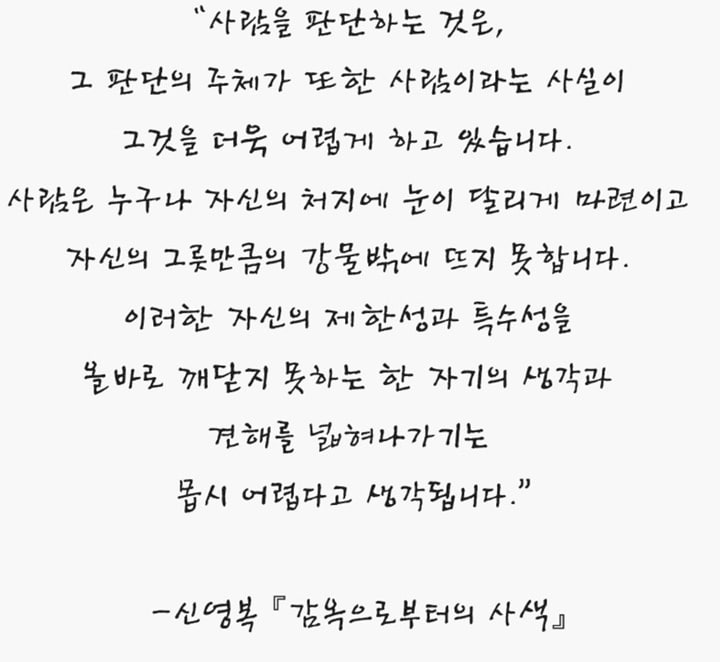 “사람을 판단하는 것은,
그 판단의 주체가 또한 사람이라는 사실이
그것을 더욱 어렵게 하고 있습니다.
사람은 누구나 자신의 처지에 눈이 달리게 마련이고
자신의 그릇만큼의 강물밖에 뜨지 못합니다.
이러한 자신의 제한성과 특수성을
올바로 깨닫지 못하는 한 자기의 생각과
견해를 넓혀나가기는
몹시 어렵다고 생각됩니다.”
-신영복 『감옥으로부터의 사색』